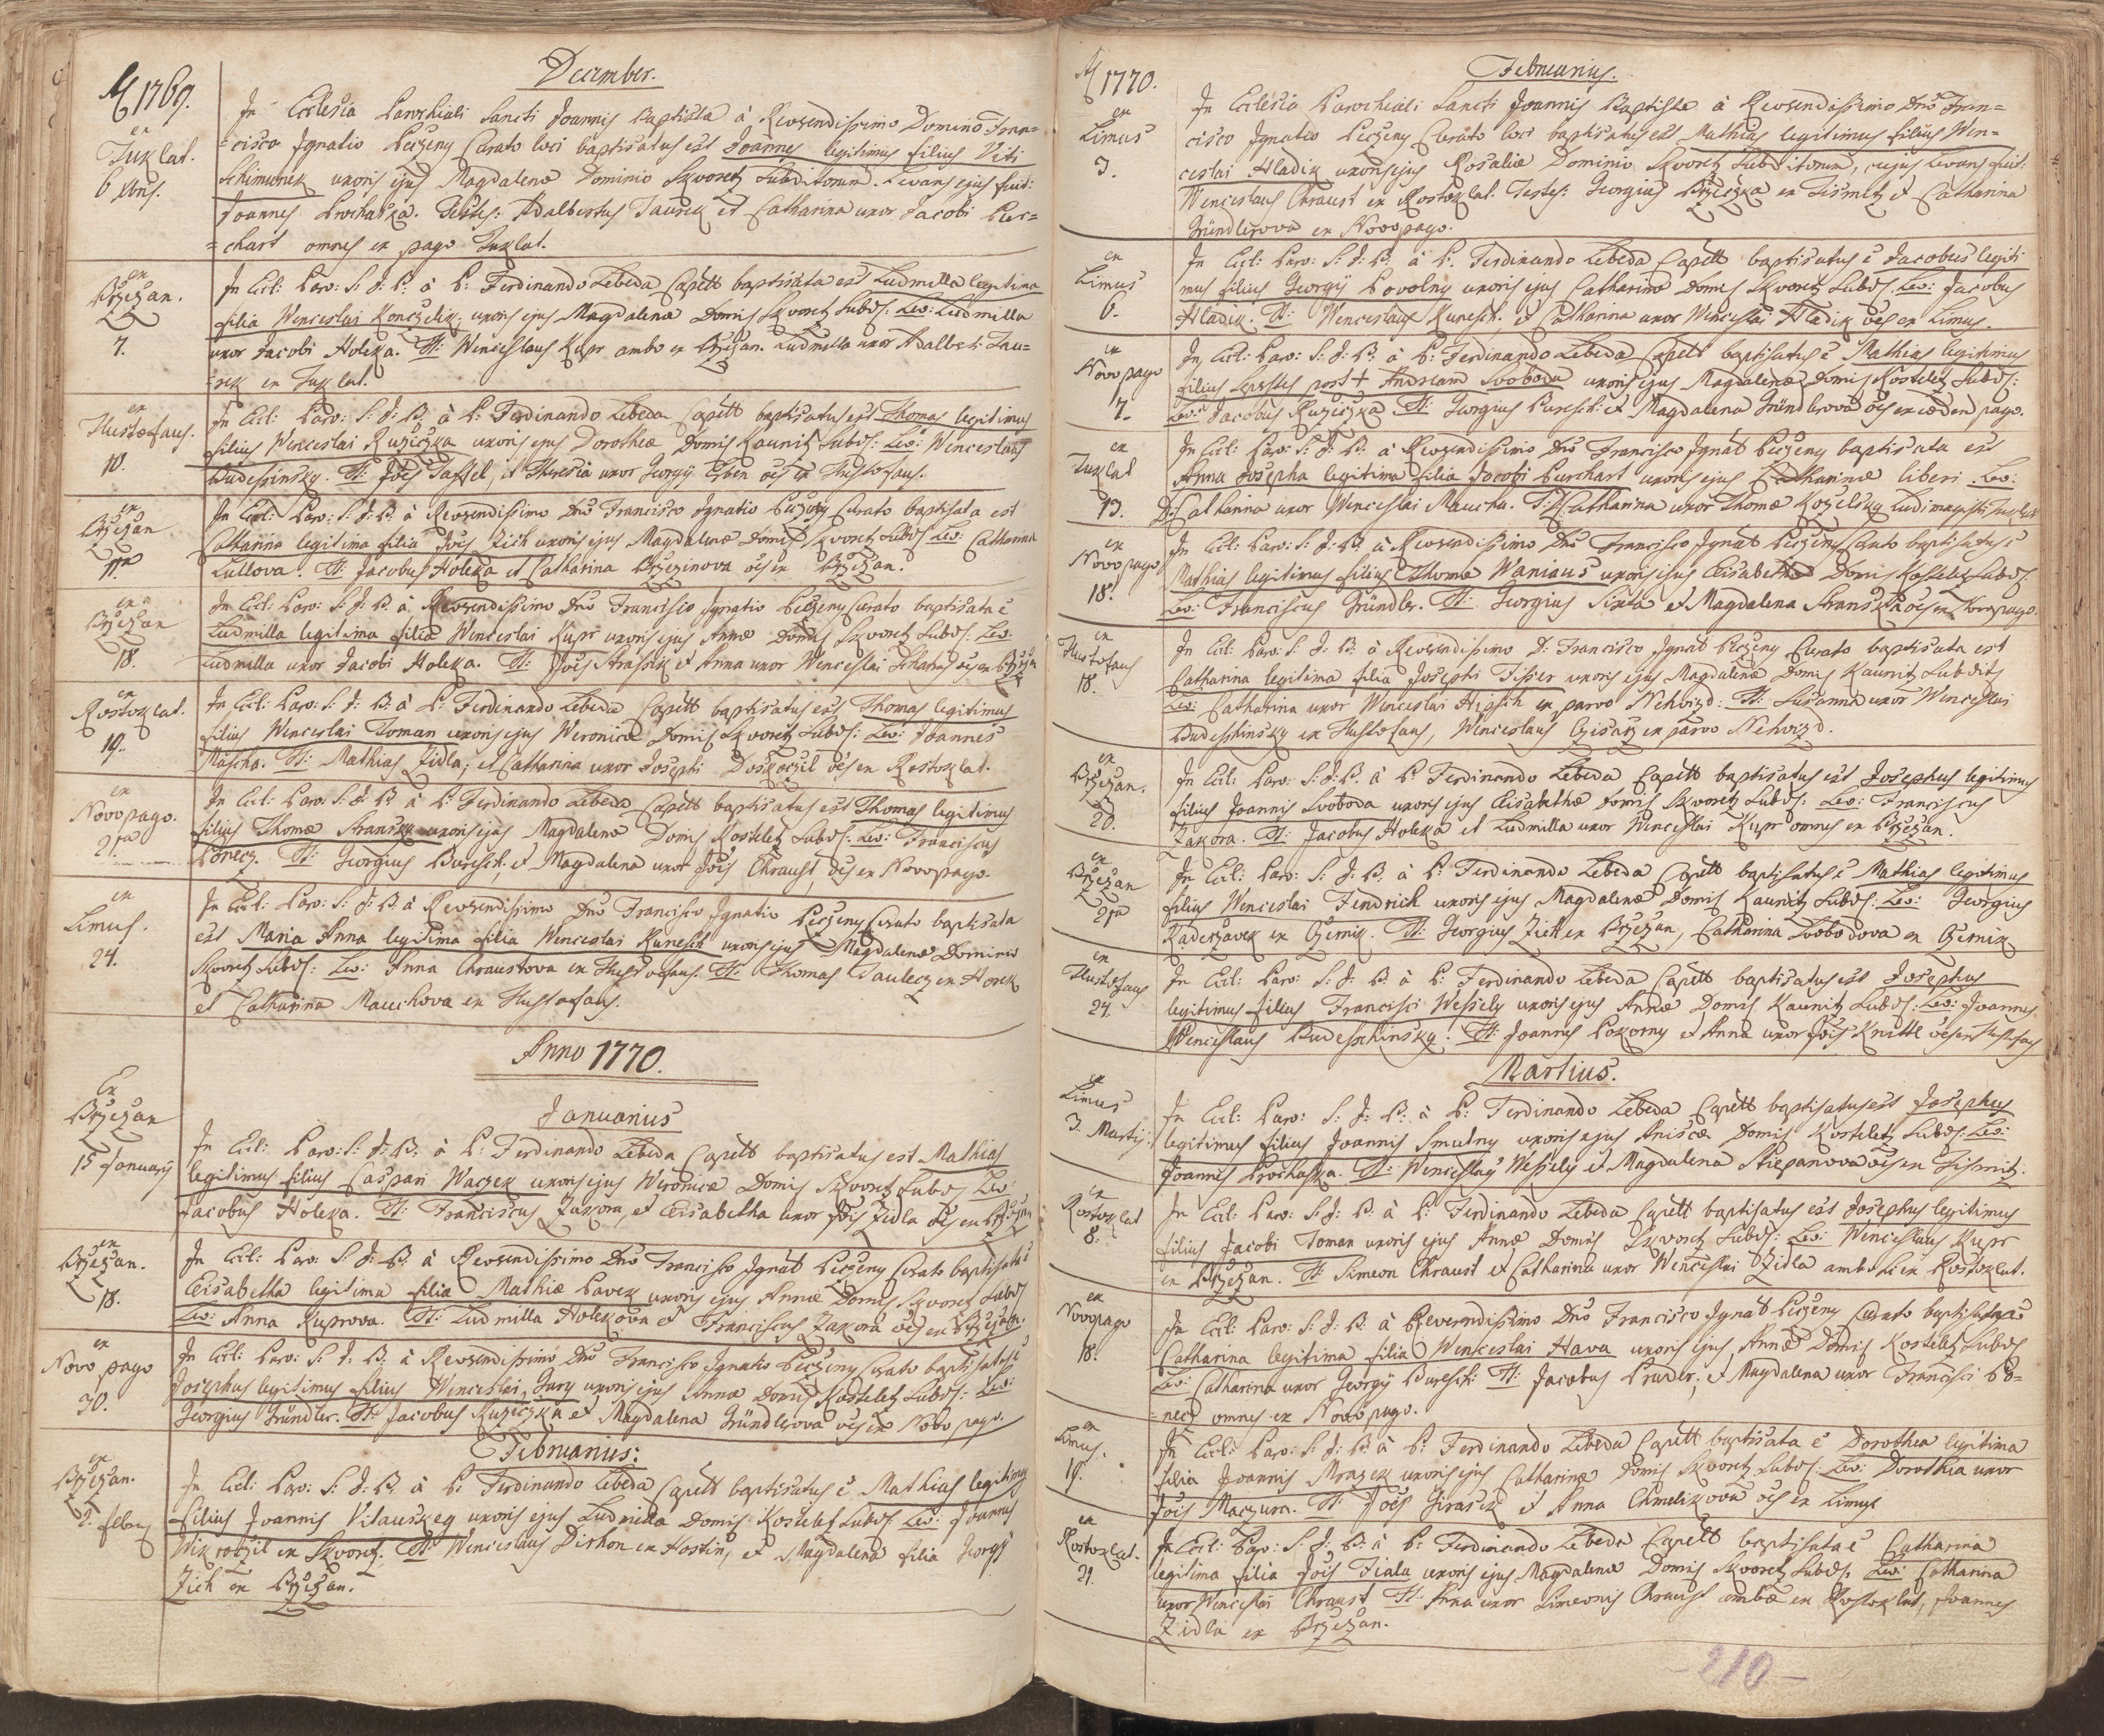 A 1769.
December.
ex
Tuklat.
6 Xbris.
In Ecclesia Parochiali Sancti Joannis Baptistæ à Reverendissimo Domino Fran=
=cisco Ignatio Peczeny Curato loci baptisatus est Joannes legitimus filius Viti
Schimunek uxoris ejus Magdalenæ Dominio Skvoretz Subditorum. Levans ejus fuit:
Joannes Prochaska. Testes: Adalbertus Taurek et Catharina uxor Jacobi Pur=
=chart omnes ex pago Tuklat.
ex
Brzezan.
7.
In Eccl: Paro: S: J: B: à P: Ferdinando Lebeda Capell baptisata est Ludmilla legitima
filia Wenceslai Konczelik uxoris ejus Magdalenæ Domis Skvoretz Subds: Lev: Ludmilla
uxor Jacobi Holeka. TT: Wenceslaus Kupr ambo ex Brzezan. Ludmilla uxor Adalberti Tau=
=rek ex Tuklat.
ex
Hustofaus.
10.
In Eccl: Paro: S: J: B: à P: Ferdinando Lebeda Capell baptisatus est Thomas legitimus
filius Wenceslai Ruziczka uxoris ejus Dorotheæ Domis Kaunitz Subds: Lev: Wenceslaus
Budessinsky. TT: Jois Taffel, et Theresia uxor Georgij Eben oes ex Hustofaus.
ex
Brzezan
11ma
In Eccl: Paro: S: J: B: à Reverendissimo Dno Francisco Ignatio Peczeny Curato baptisata est
Catharina legitima filia Jois Zich uxoris ejus Magdalenæ Domis Skvoretz Subds Lev: Catharina
Lullova. TT: Jacobus Holeka et Catharina Brzezinova oes ex Brzezan.
ex
Brzezan
18.
In Eccl: Paro: S: J: B: à Reverendissimo Dno Francisco Ignatio Peczeny Curato baptisata e
Ludmilla legitima filia Wenceslai Kupr uxoris ejus Annæ Domis Skvoretz Subds: Lev:
Ludmilla uxor Jacobi Holeka. TT: Jois Strassik et Anna uxor Wenceslai oes ex Brzezan
ex
Rostoklat.
19.
In Eccl: Paro: S: J: B: à P: Ferdinando Lebeda Capell baptisatus est Thomas legitimus
filius Wenceslai Toman uxoris ejus Weronicæ Domis Skvoretz Subds: Lev: Joannes
Mascha. TT: Mathias Zidla, et Catharina uxor Josephi Doskoczil oes ex Rostoklat.
ex
Novopago.
21ma
In Eccl: Paro: S: J: B: à P: Ferdinando Lebeda Capell baptisatus est Thomas legitimus
filius Thomæ Stransky uxoris ejus Magdalenæ Domis Kosteletz Subds: Lev: Franciscus
Bonecz. TT: Georgius Buresch, et Magdalena uxor Jois Chraust, oes ex Novopago.
ex
Limus.
24.
In Eccl: Paro: S: J: B: à Reverendissimo Dno Francisco Ignatio Peczeny Curato baptisata
est Maria Anna legitima filia Wenceslai Kunesch uxoris ejus Magdalenæ Dominio
Skvoretz Subds: Lev: Anna Chraustova ex Hustofaus. TT: Thomas Paulecz ex Horek
et Catharina Mauchova ex Hustofaus.
Anno 1770.
Januarius
Ex
Brzezan
15 January
In Eccl: Paro: S: J: B: à P: Ferdinando Lebeda Capell baptisatus est Mathias
legitimus filius Caspari Waczek uxoris ejus Weronicæ Domis Skvoretz Subds Lev:
Jacobus Holeka. TT: Franciscus Zakora, et Elisabetha uxor Jois Zidla oes ex Brzezan
ex
Brzezan.
18.
In Eccl: Paro: S: J: B: à Reverendissimo Dno Francisco Ignat Peczeny Curato baptisata e
Elisabetha legitima filia Mathiæ Pavek uxoris ejus Annæ Domis Skvoretz Subds
Lev: Anna Kuprova. TT: Ludmilla Holekova et Franciscus Zakora oes ex Brzezan.
ex
Novo pago
30.
In Eccl: Paro: S: J: B: à Reverendissimo Dno Francisco Ignatio Peczeny Curato baptisatus e
Josephus legitimus filius Wenceslai Jary uxoris ejus Annæ Domis Kosteletz Subds: Lev:
Georgius Gründler. TT: Jacobus Ruziczka et Magdalena Gründlerova oes ex Novo pago.
Februarius:
ex
Brzezan.
2. febru
In Eccl: Paro: S: J: B: à P: Ferdinando Lebeda Capell baptisatus e Mathias legitimus
filius Joannis Vitauskeg uxoris ejus Ludmilla Domis Kosteletz Subds: Lev: Joannes
Wikroczil ex Skvoretz. TT: Wenceslaus Dirhon ex Hostin, et Magdalena filia Georgij
Zich ex Brzezan.
A 1770.
Februarius.
ex
Limus
3.
In Ecclesia Parochiali Sancti Joannis Baptistæ à Reverendissimo Dno Fran=
cisco Ignatio Peczeny Curato loci baptisatus est Mathias legitimus filius Wen=
ceslai Hladik uxoris ejus Rosaliæ Dominio Skvoretz Subditorum, cujus Levans fuit:
Wenceslaus Chraust ex Rostoklat. Testes: Georgius Brzeczka ex Tismitz et Catharina
Gründlerova ex Novopago.
ex
Limus
6.
In Eccl: Paro: S: J: B: à P: Ferdinando Lebeda Capell baptisatus e Jacobus legiti
mus filius Georgij Povolny uxoris ejus Catharinæ Domis Skvoretz Subds. Lev: Jacobus
Hladik. TT: Wenceslaus Kunesch, et Catharina uxor Wenceslai Hladik oes ex Limus.
ex
Novo pago
7.
In Eccl: Paro: S: J: B: à P: Ferdinando Lebeda Capell baptisatus e Mathias legitimus
filius post + Andream Svoboda uxoris ejus Magdalenæ Domis Kosteletz Subds:
Lev: Jacobus Ruziczka TT: Georgius Buresch et Magdalena Gründlerova oes ex eodem pago.
ex
Tuklat
13.
In Eccl: Paro: S: J: B: à Reverendissimo Dno Francisco Ignat Peczeny baptisata est
Anna Josepha legitima filia Jacobi Burchart uxoris ejus Catharinæ liberi. Lev:
D: Catharina uxor Wenceslai Maucha. T: Catharina uxor Thomæ Kozelsky Ludimagistri Tuklat
ex
Novo pago
18.
In Eccl: Paro: S: J: B: à Reverendissimo Dno Francisco Ignat Peczeny Curato baptisatus e
Mathias legitimus filius Thomæ Waniaus uxoris ejus Elisabethæ Domis Kosteletz Subds.
Lev: Franciscus Gründler. TT: Georgius Sixta et Magdalena Stranska oes ex Novopago.
ex
Hustofaus
18.
In Eccl: Paro: S: J: B: à Reverendissimo D: Francisco Ignat Peczeny Curato baptisata est
Catharina legitima filia Josephi Fisser uxoris ejus Magdalenæ Domis Kaunitz Subditi
Lev: Catharina uxor Wenceslai Hipsch ex parvo Nehvizd: TT: Susanna uxor Wenceslai
Budesshinsky ex Hustofaus, Wenceslaus Czisarz ex parvo Nehvizd.
ex
Brzezan.
20.
In Eccl: Paro: S: J: B: à P: Ferdinando Lebeda Capell baptisatus est Josephus legitimus
filius Joannis Svoboda uxoris ejus Elisabethæ Domis Skvoretz Subds: Lev: Franciscus
Zakora. TT: Jacobus Holeka et Ludmilla uxor Wenceslai Kupr omnes ex Brzezan.
ex
Brzezan
21ma
In Eccl: Paro: S: J: B: à P: Ferdinando Lebeda Capell baptisatus e Mathias legitimus
filius Wenceslai Fendrich uxoris ejus Magdalenæ Domis Kaunitz Subds: Lev: Georgius
Kaderzavek ex Czernik. TT: Georgius Zich ex Brzezan, Catharina Svobodova ex Czernik
ex
Hustofaus
24.
In Eccl: Paro: S: J: B: à P: Ferdinando Lebeda Capell baptisatus est Josephus
legitimus filius Francisci Wessely uxoris ejus Annæ Domis Kaunitz Subds: Lev: Joannes
Wenceslaus Budesshinsky. TT: Joannes Pokorny et Anna uxor Jois Knittl oes ex Hustofaus
Martius.
ex
Limus
3. Martij.
In Eccl: Paro: S: J: B: à P: Ferdinando Lebeda Capell baptisatus est Josephus
legitimus filius Joannis Smutny uxoris ejus Aniscæ Domis Kosteletz Subds: Lev:
Joannes Prochaska. TT: Wenceslaus Wessely et Magdalena Stiepanova oes ex Tismitz.
ex
Rostoklat
8.
In Eccl: Paro: S: J: B: à P: Ferdinando Lebeda Capell baptisatus est Josephus legitimus
filius Jacobi Toman uxoris ejus Annæ Domis Skvoretz Subds: Lev: Wenceslaus Kupr
ex Brzezan. TT: Simeon Chraust et Catharina uxor Wenceslai Zidla ambo ex Rostoklat.
ex
Novopago
18.
In Eccl: Paro: S: J: B: à Reverendissimo Dno Francisco Ignat Peczeny Curato baptisata e
Catharina legitima filia Wenceslai Hava uxoris ejus Annæ Domis Kosteletz Subds
Lev: Catharina uxor Georgij Buresch: TT: Jacobus Pruder, et Magdalena uxor Francisci Bo=
=necz omnes ex Novo pago.
ex
Limus.
19.
In Eccl: Paro: S: J: B: à P: Ferdinando Lebeda Capell baptisata e Dorothea legitima
filia Joannis Mrazek uxoris ejus Catharinæ Domis Skvoretz Subds: Lev: Dorothea uxor
Jois Maczura. TT: Jois Jirasek et Anna Chmelikova oes ex Limus
ex
Rostoklat.
21.
In Eccl: Paro: S: J: B: à P: Ferdinando Lebeda Capell baptisata e Catharina
legitima filia Jois Fiala uxoris ejus Magdalenæ Domis Skvoretz Subds. Lev: Catharina
uxor Wenceslai Chraust TT: Anna uxor Simeonis Chraust ambæ ex Rostoklat, Joannes
Zidla ex Brzezan.
- 210 -